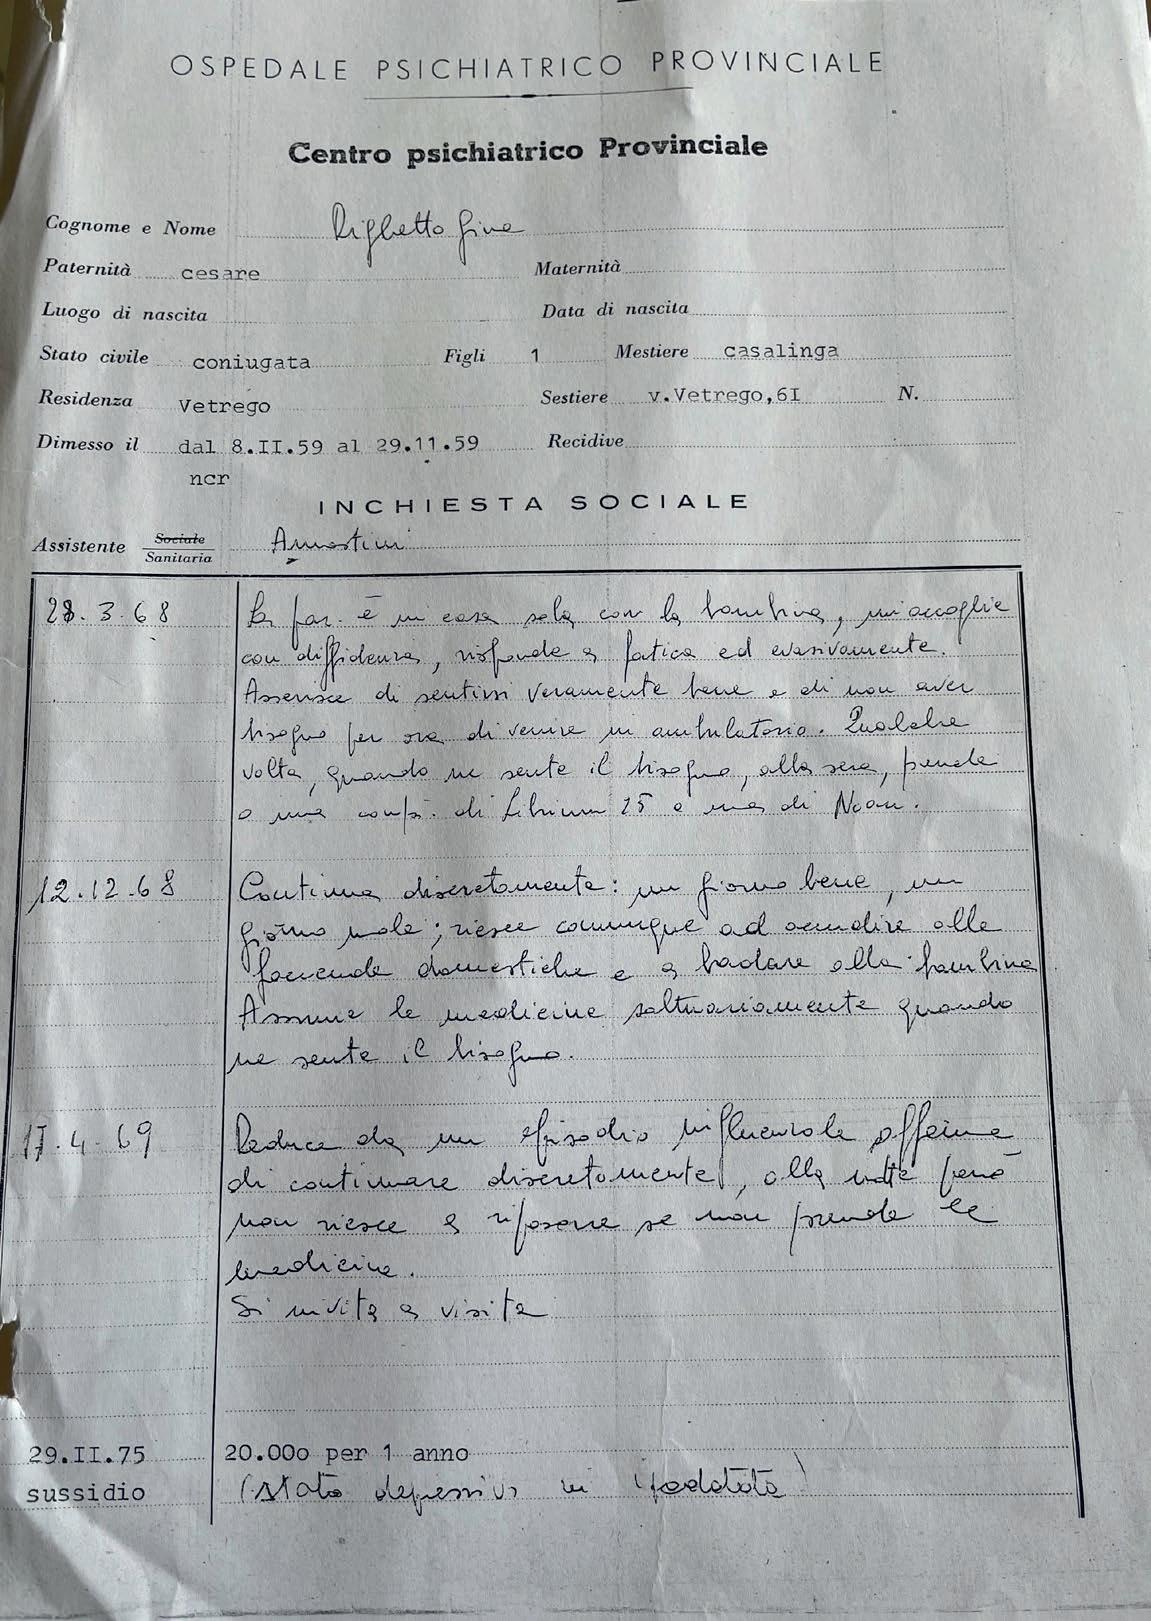 OSPEDALE PSICHIATRICO PROVINCIALE
Centro psichiatrico Provinciale
Cognome e Nome Righetto Gina
Paternità cesare Maternità
Luogo di nascita Data di nascita
Stato civile coniugata Figli 1 Mestiere casalinga
Residenza Vetrego Sestiere v.Vetrego,6I N.
Dimesso il dal 8.II.59 al 29.11.59 Recidive
ncr
INCHIESTA SOCIALE
Assistente Sociale
Sanitaria
28.3.68 La è in casa sola con la bambina, mi accoglie
con diffidenza, risponde a fatica ed evasivamente.
Asserisce di sentirsi veramente bene e di non aver
bisogno per ora di venire in ambulatorio. Qualche
volta, quando ne sente il bisogno, alla sera, prende
o una di Librium 25 o una di Noan.
12.12.68 Continua discretamente: un giorno bene, un
giorno male; riesce comunque ad accudire alle
faccende domestiche e a badare alla bambina
Assume le medicine saltuariamente quando
ne sente il bisogno.
17.4.69 Reduce da un episodio influenzale afferma
di continuare discretamente, alla notte però
non riesce a riposare se non prende le
medicine.
Si invita a visita
29.II.75 20.00o per 1 anno
sussidio (stato depressivo in )